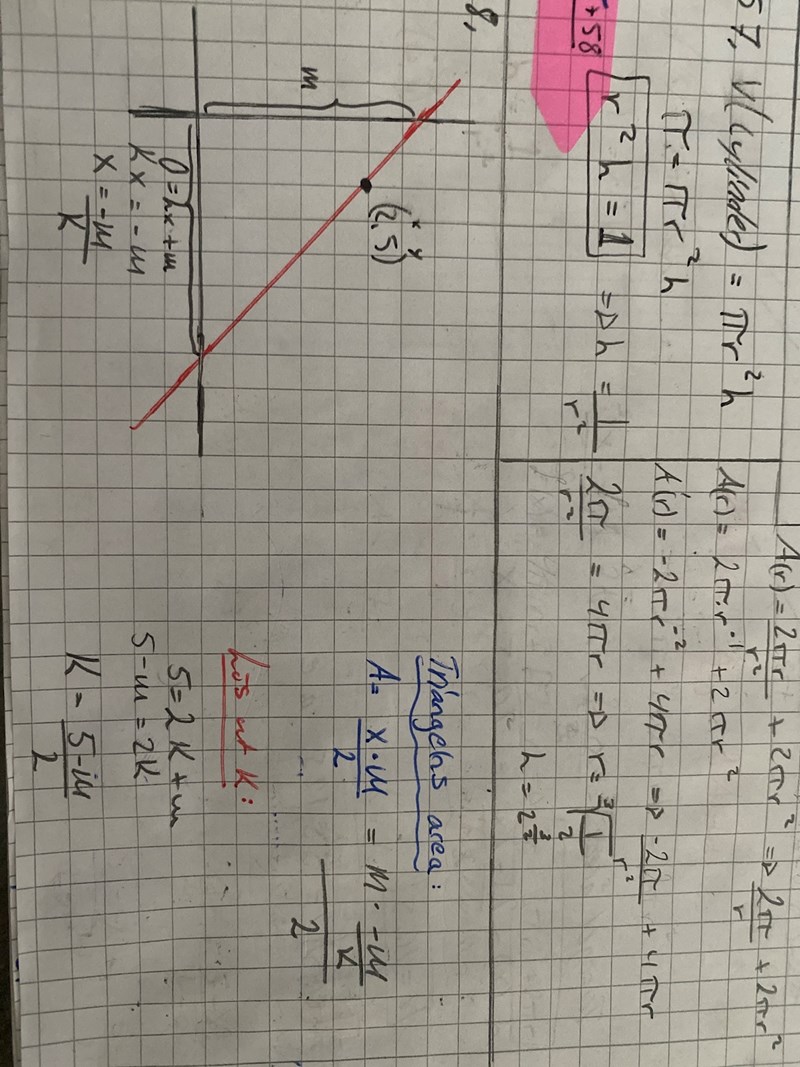 57, V(cylinder) = πr²h
π = πr²h
r²h = 1 => h = 1/r²
+58
A(r) = 2πr/r² + 2πr² => 2π/r + 2πr²
A(r) = 2π·r⁻¹ + 2πr²
A'(r) = -2πr⁻² + 4πr => -2π/r² + 4πr
2π/r² = 4πr => r = ∛(1/2)
8,
m
(2,5)
x y
0 = kx + m
kx = -m
x = -m/k
Triangelns area:
A = x·m/2 = m·-m/k/2
Lös ut k:
5 = 2k + m
5-m = 2k
k = 5-m/2